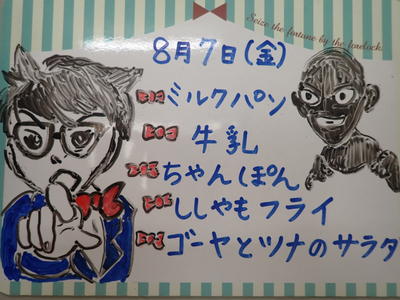 Seize the fortune by the forelock.
8月7日(金)
ミルクパン
牛乳
ちゃんぽん
ししゃもフライ
ゴーヤとツナのサラダ